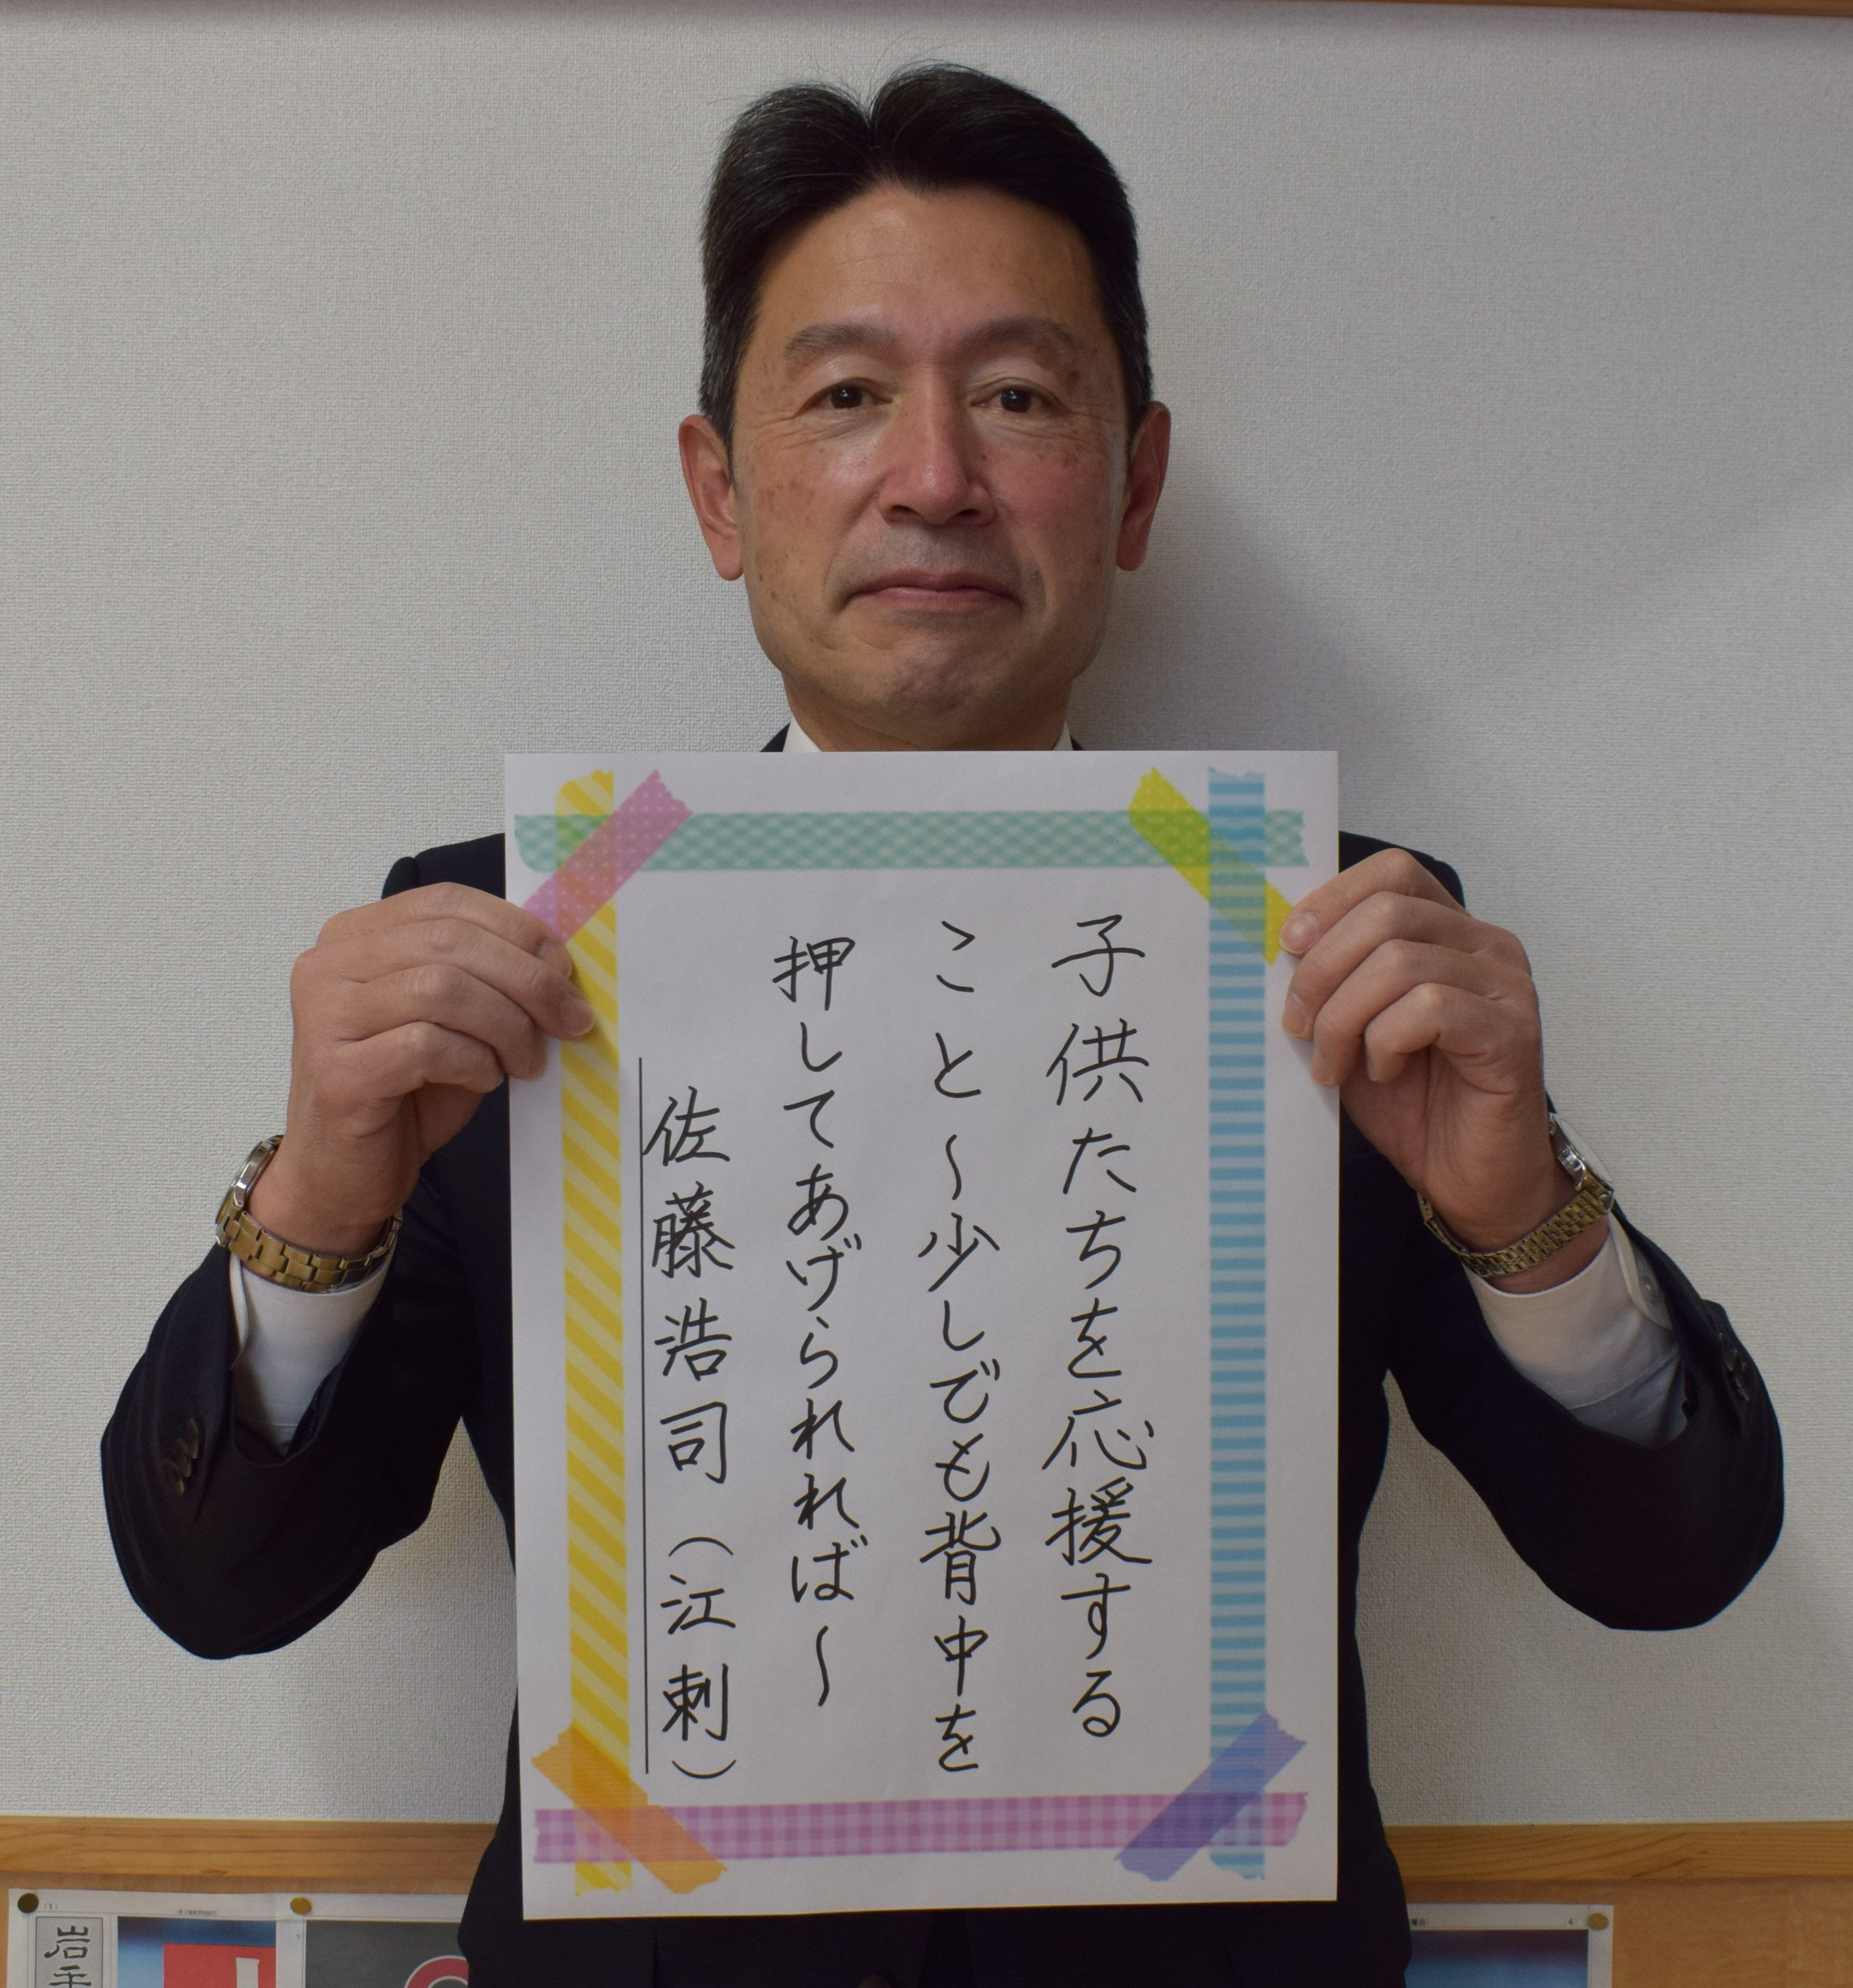 子供たちを応援する
こと〜少しでも背中を
押してあげられれば〜
佐藤浩司（江刺）
岩手